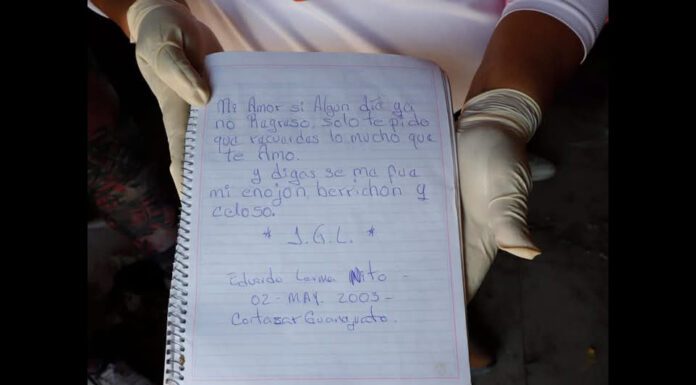 Mi Amor si Algun dia ya
no Regreso, solo te pido
que recuerdes lo mucho que
te Amo.
y digas se me fue
mi enojon berrichon y
celoso.
* J.G.L. *
Eduardo Lerma Nito -
02 - MAY. 2003 -
Cortazar Guanajuato.